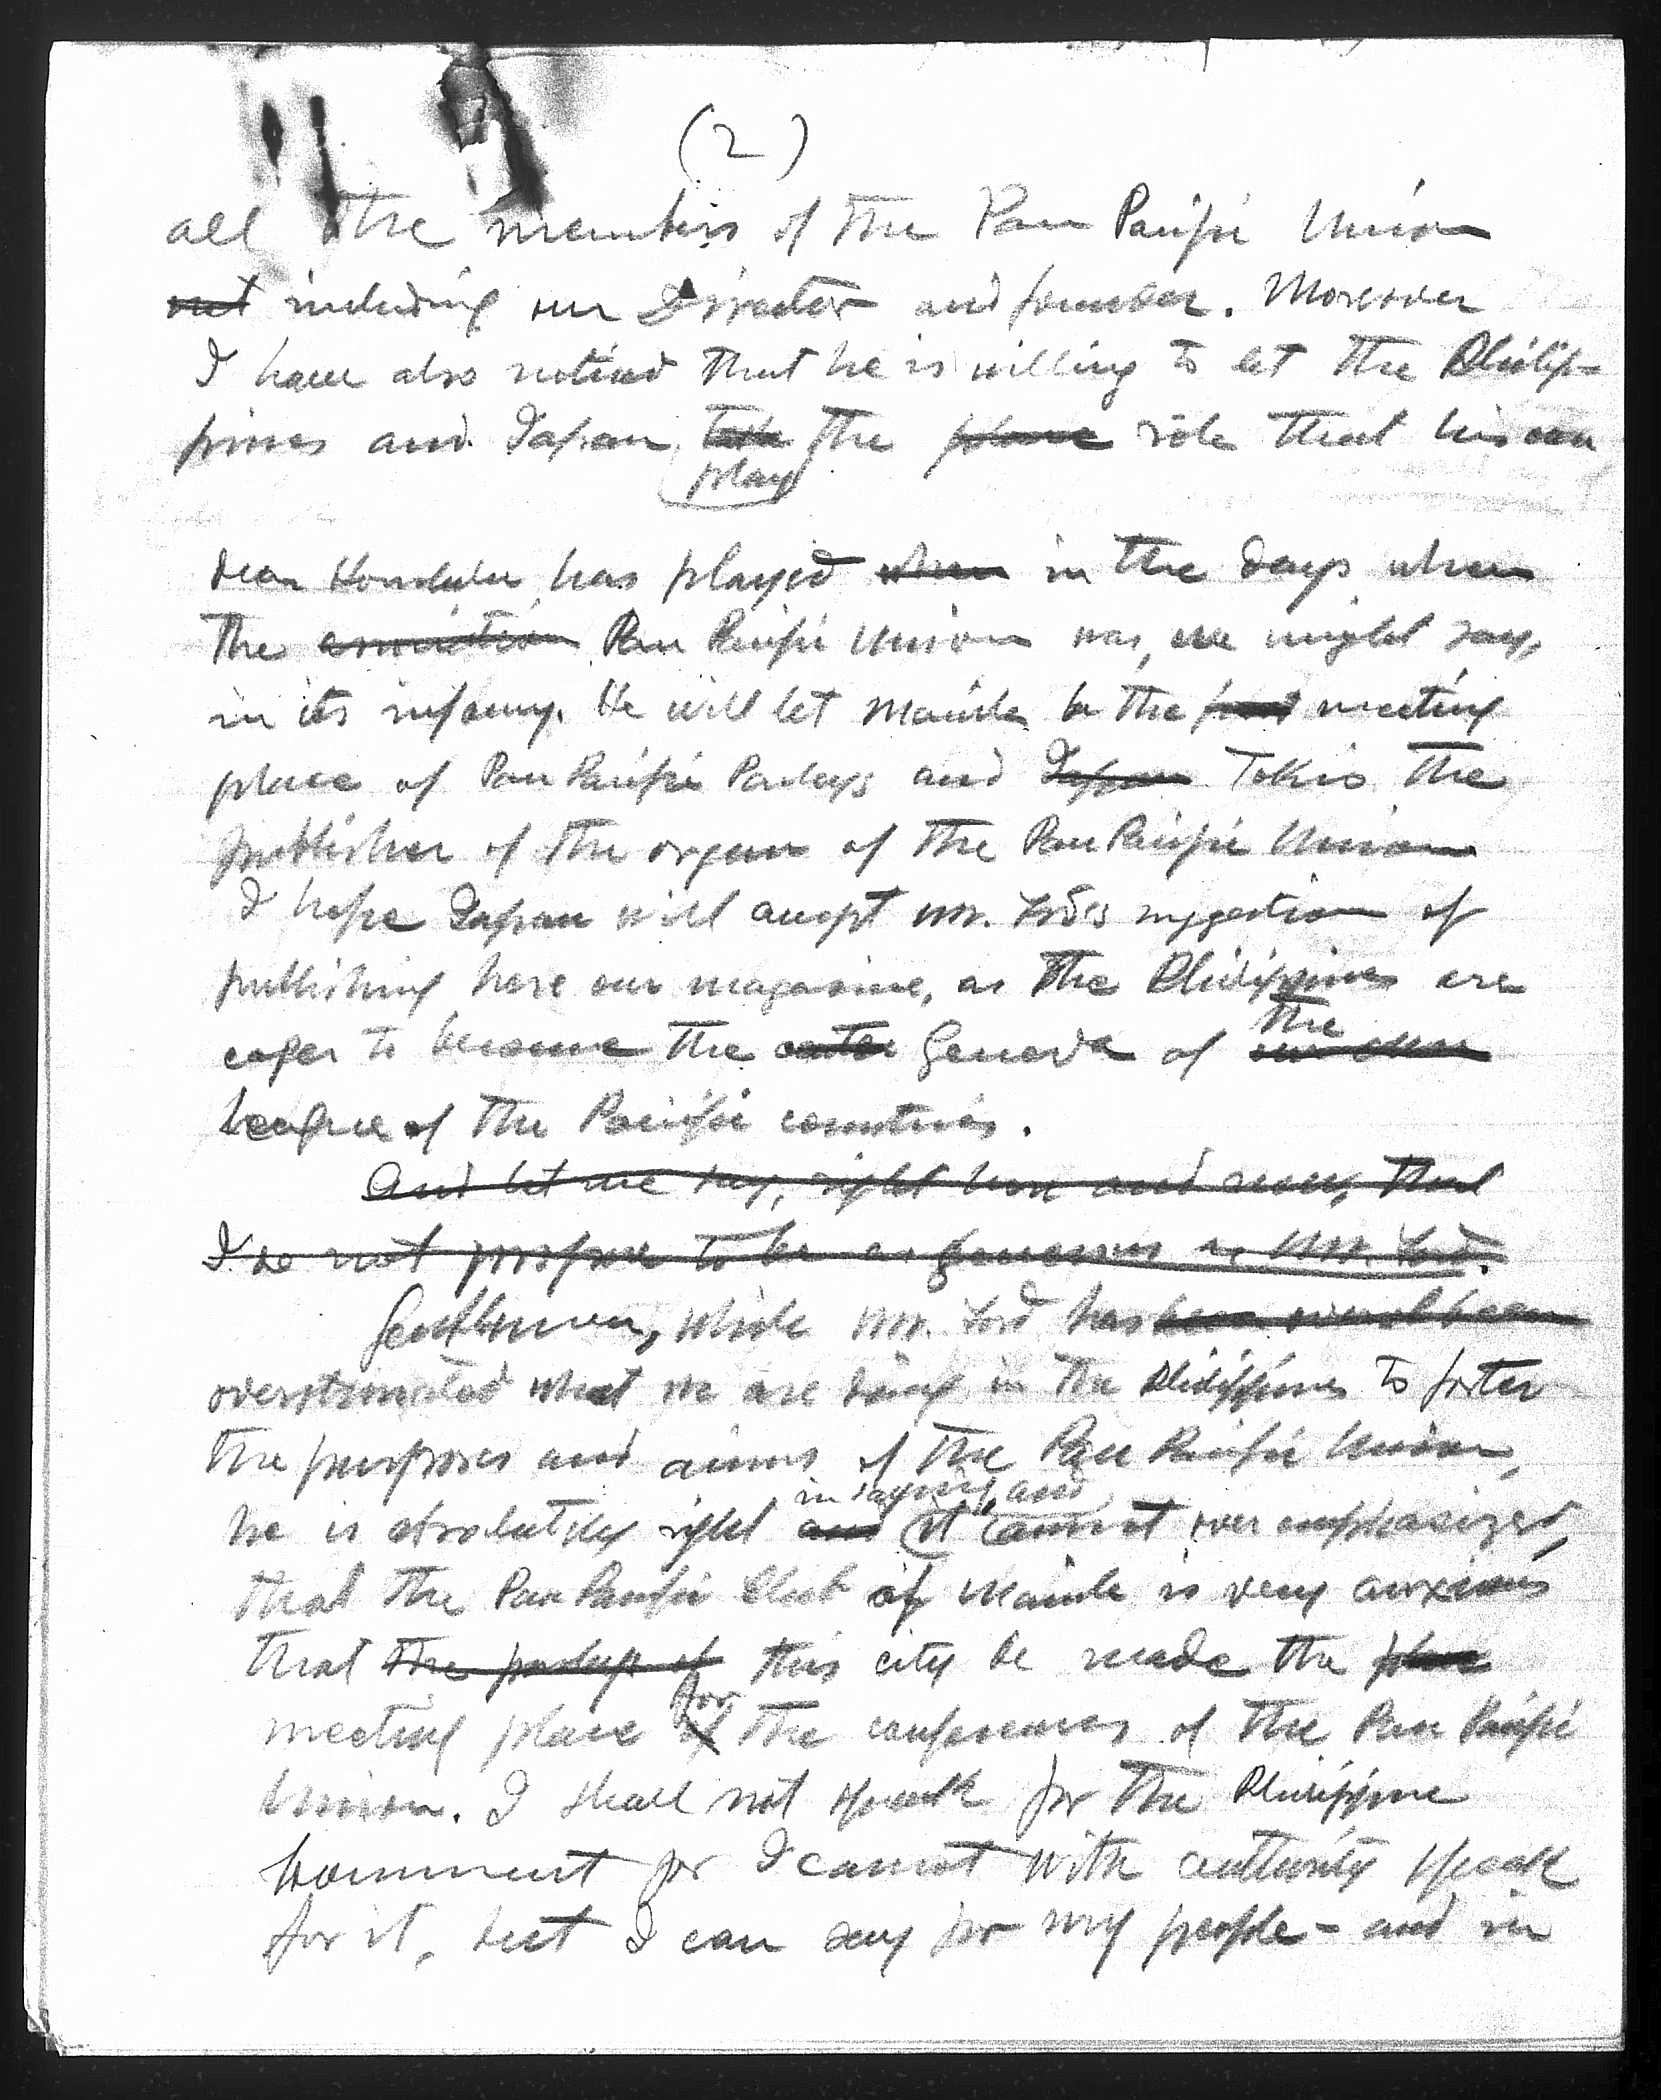 (2)
all the members of the Pan Pacific Union
out including our Director and founder. Moreover
I have also noticed that he is willing to let the Philip-
pines and Japan take the place role that his own
play
dear Honolulu has played when in the days when
the association Pan Pacific Union was, we might say,
in its infancy. He will let Manila be the meeting
place of Pan Pacific Parleys and Japan Tokio the
publisher of the organ of the Pan Pacific Union
I hope Japan will accept Mr. Ford's suggestion of
publishing here our magazine, as the Philippines are
the
eager to become the center Geneva of our own
League of the Pacific countries.
And let me say, right here and now, that
I do not propose to be as generous as Mr. Ford.
Gentlemen, while Mr. Ford has been
overestimated what we are doing in the Philippines to foster
the purposes and aims of the Pan Pacific Union,
in saying and
he is absolutely right and it cannot over emphasized,
that the Pan Pacific Club of Manila is very anxious
that the parleys of this city be made the place
for
meeting place of the conferences of the Pan Pacific
Union. I shall not speak for the Philippine
for I cannot with authority speak
for it, but I can say for my people - and in